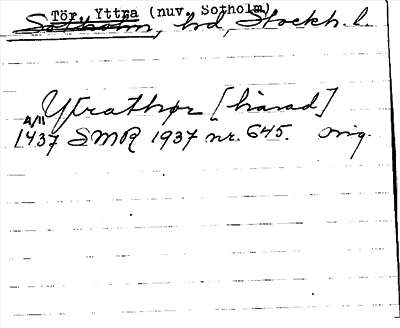 Tör, Yttra (nuv. Sotholm)
Sotholm, hd, Stockh. l.
Ytrathør [härad]
4/11
1437 SMR 1937 nr. 645. orig.